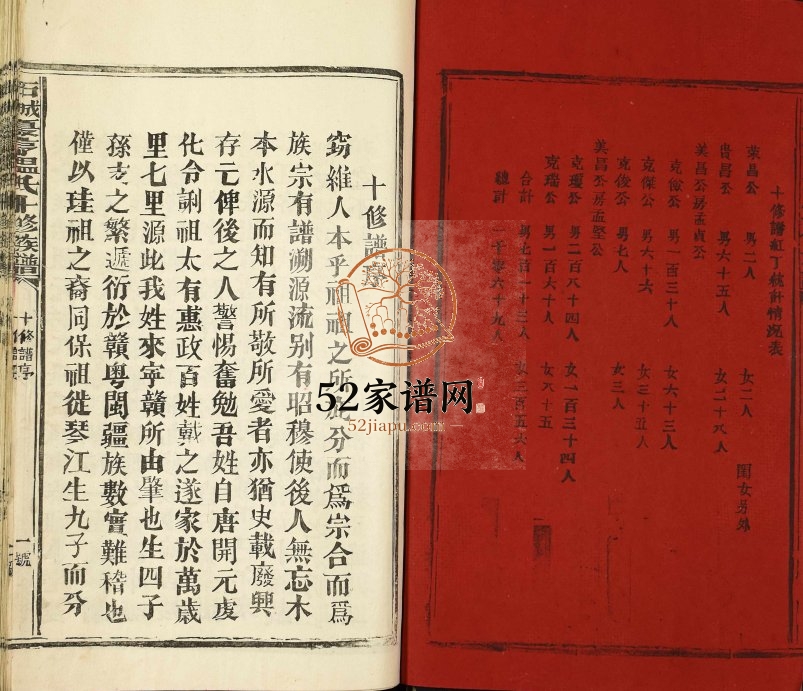 十修譜紅丁統計情况表
榮昌公 男二人 女二人 閨女另外
貴昌公 男六十五人 女二十八人
美昌公房孟貞公
克儉公 男一百三十八人 女六十三人
克傑公 男六十六 女三十五人
克俊公 男七人 女三人
美昌公房孟堅公
克瓊公 男二百八十四人 女一百三十四人
克瑞公 男一百六十人 女八十五
合計 男七百一十三人 女三百五六人
總計 一千零六十九人
十修譜序
窃維人本乎祖祖之所分而爲宗合而爲
族宗有譜溯源流别有昭穆使後人無忘木
本水源而知有所敬所愛者亦猶史載廢興
存亡俾後之人警惕奮勉吾姓自唐開元虔
化令諫祖太有惠政百姓戴之遂家於萬歲
里七里源此我姓來寧贛所由肇也生四子
孫支之繁遞衍於贛粤閩疆族數實難稽也
僅以珪祖之裔同保祖徙琴江生九子而分
石城 温氏十修族譜
十修譜序
一號
52家谱网
52jiapu.com